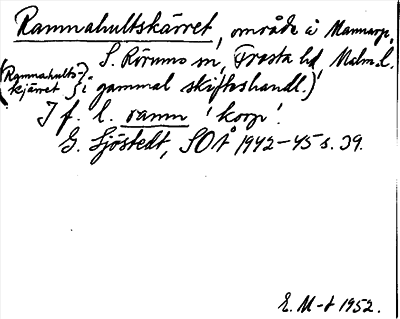 Ramnahultskärret, område i Mannarp,
S. Rörums sn, Frosta hd, Malm. l.
(Ramnahults-
kjärret } i gammal skifteshandl.)
I f. l. ramn 'korp'.
G. Sjöstedt, SOÅ 1942-45 s. 39.
E. M-t 1952.